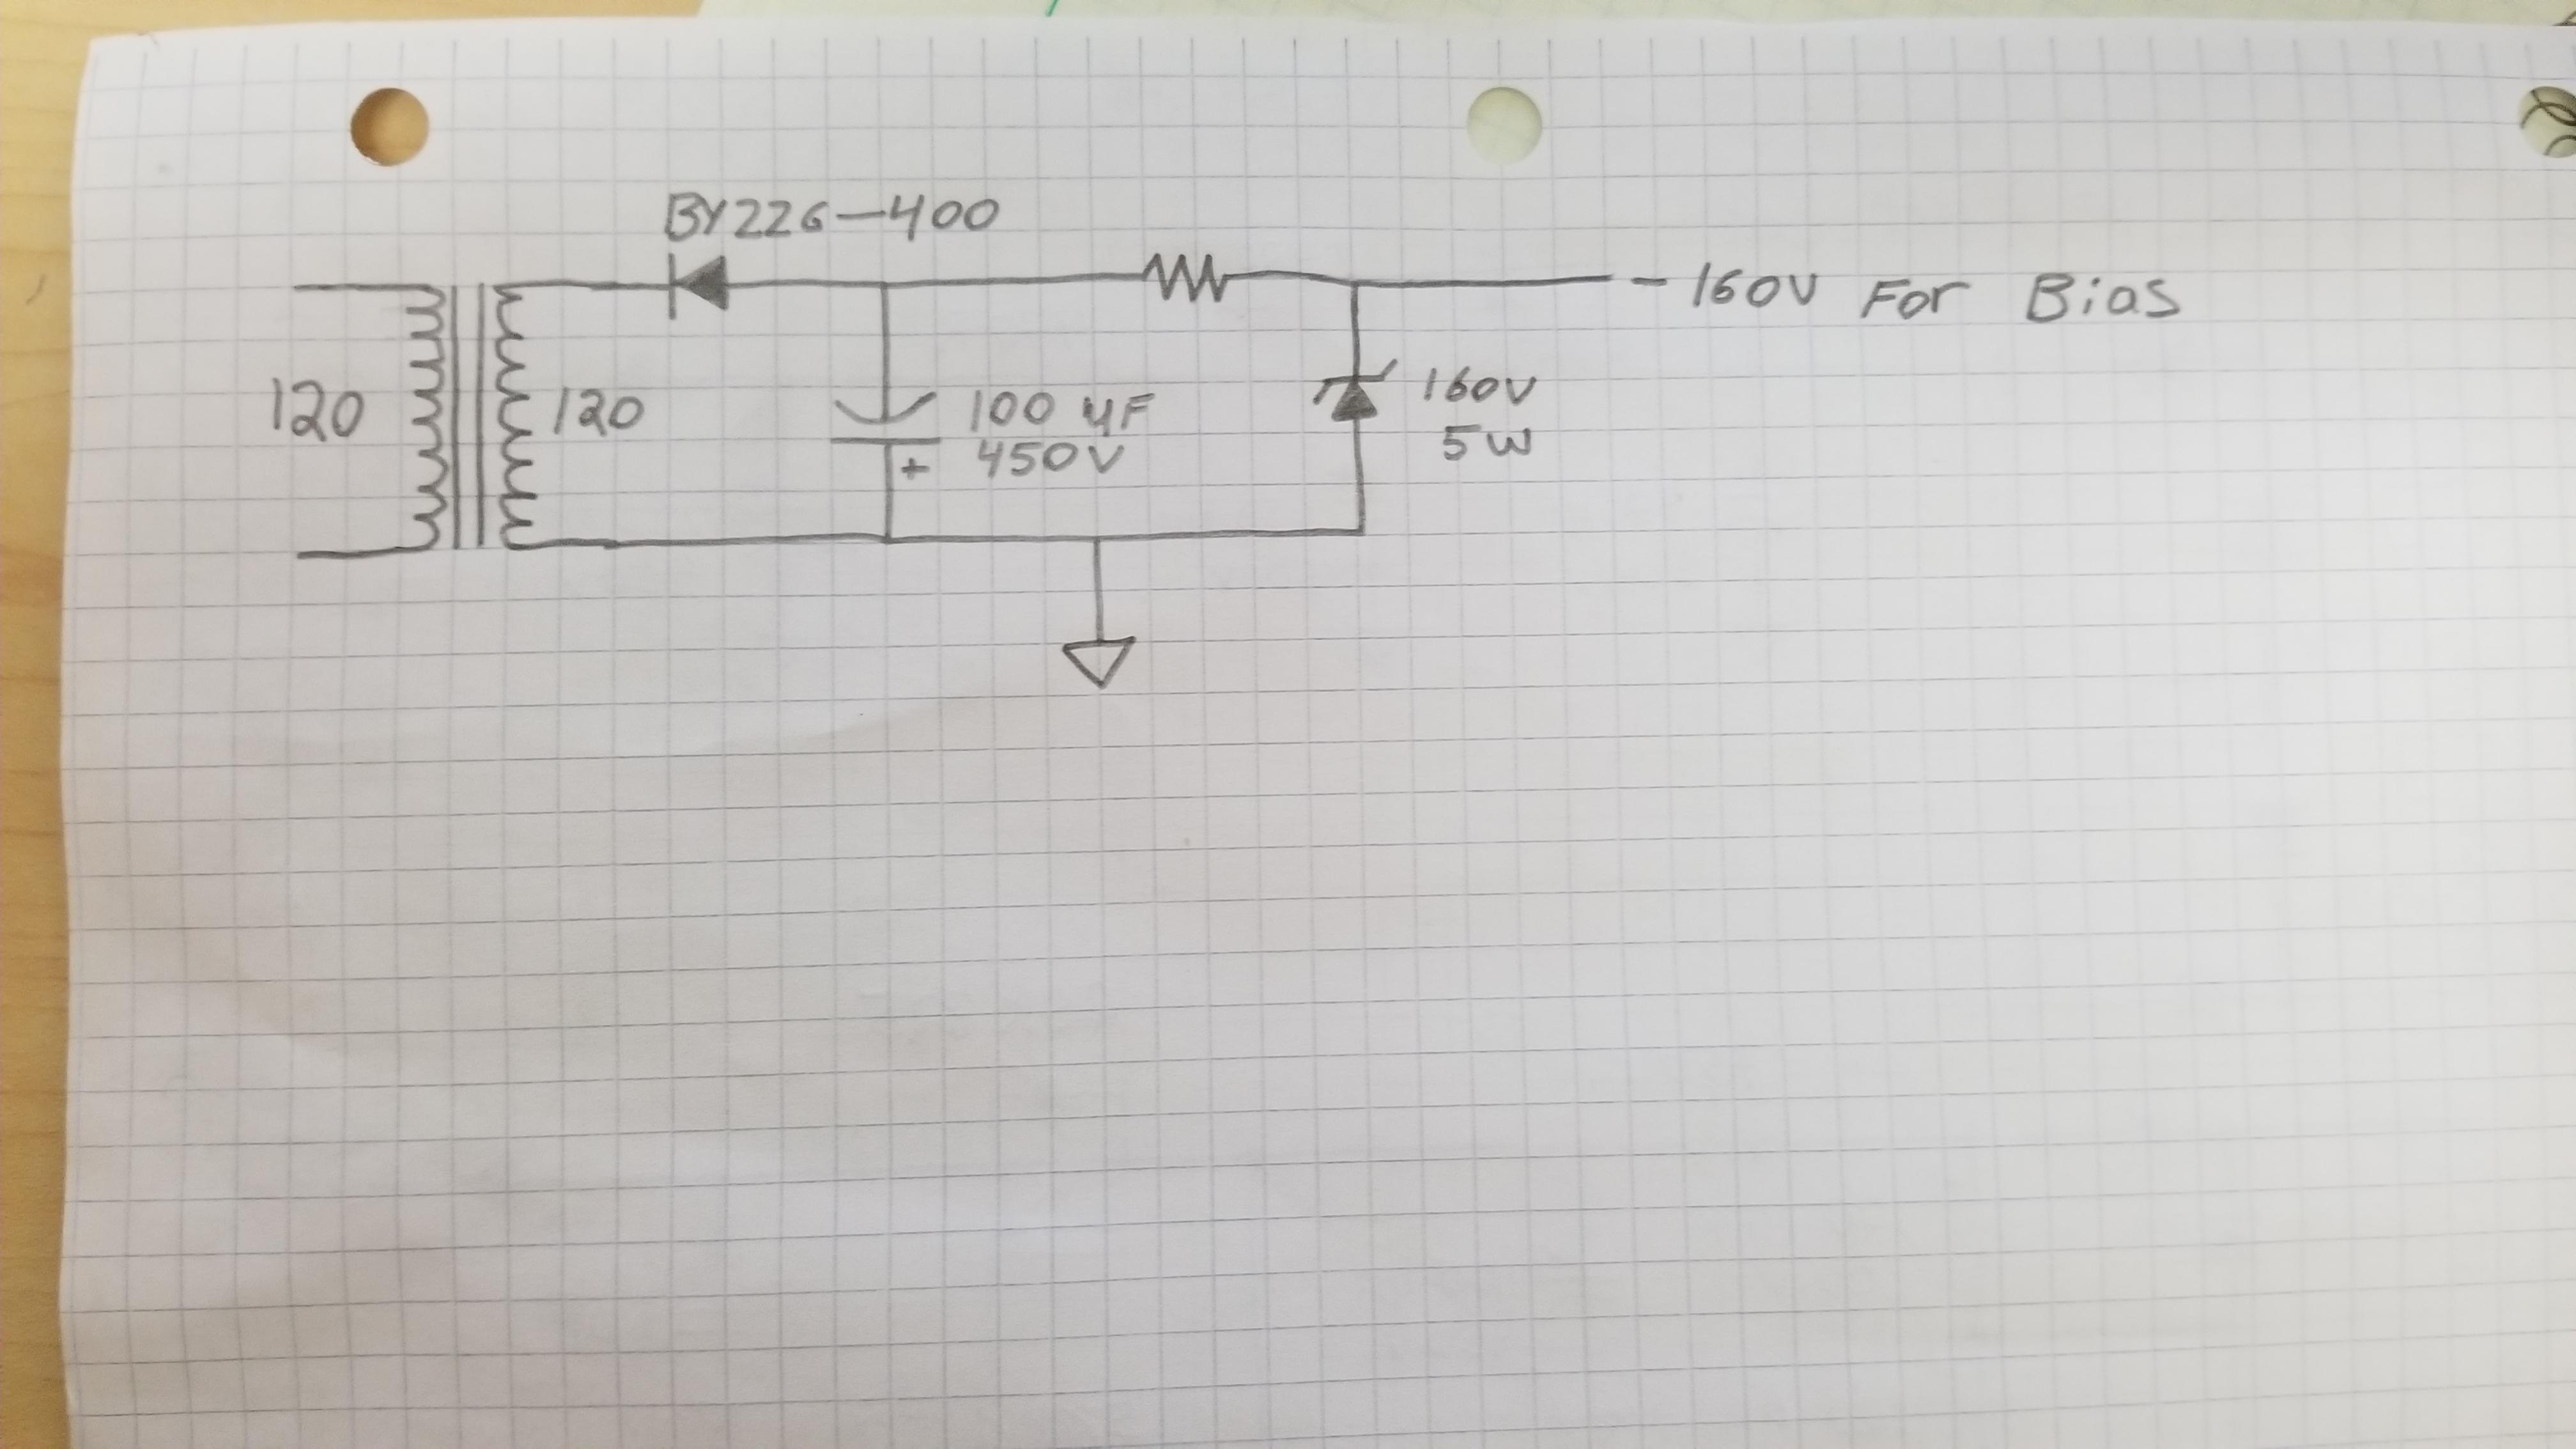 BY226-400
- 160V For Bias
120
120
100 µF
450V
+
160V
5W